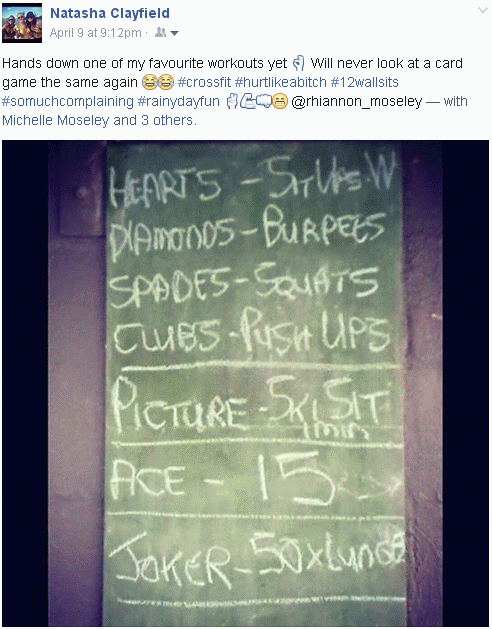 Natasha Clayfield
April 9 at 9:12pm ·
Hands down one of my favourite workouts yet Will never look at a card
game the same again #crossfit #hurtlikeabitch #12wallsits
#somuchcomplaining #rainydayfun @rhiannon_moseley — with
Michelle Moseley and 3 others.
HEARTS - SIT UPS W
DIAMONDS - BURPEES
SPADES - SQUATS
CLUBS - PUSH UPS
PICTURE - SKI SIT
1 min
ACE - 15
JOKER - 50 x LUNGE